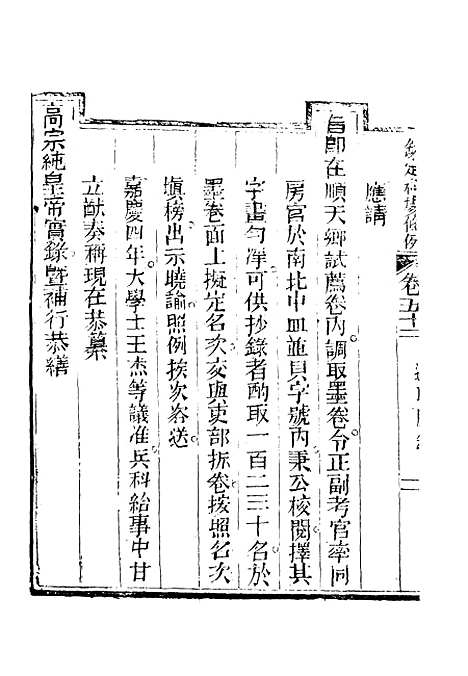 欽定科場條例 卷五十二
應請
旨即在順天鄉試薦卷內調取墨卷令正副考官率同
房官於南北中皿並貝字號內秉公校閱擇其
字畫勻淨可供抄錄者酌取一百二三十名於
墨卷面上擬定名次交與吏部拆卷按照名次
塡榜出示曉諭照例挨次咨送
嘉慶四年大學士王杰等議准兵科給事中甘
立猷奏稱現在恭纂
高宗純皇帝實錄暨補行恭繕